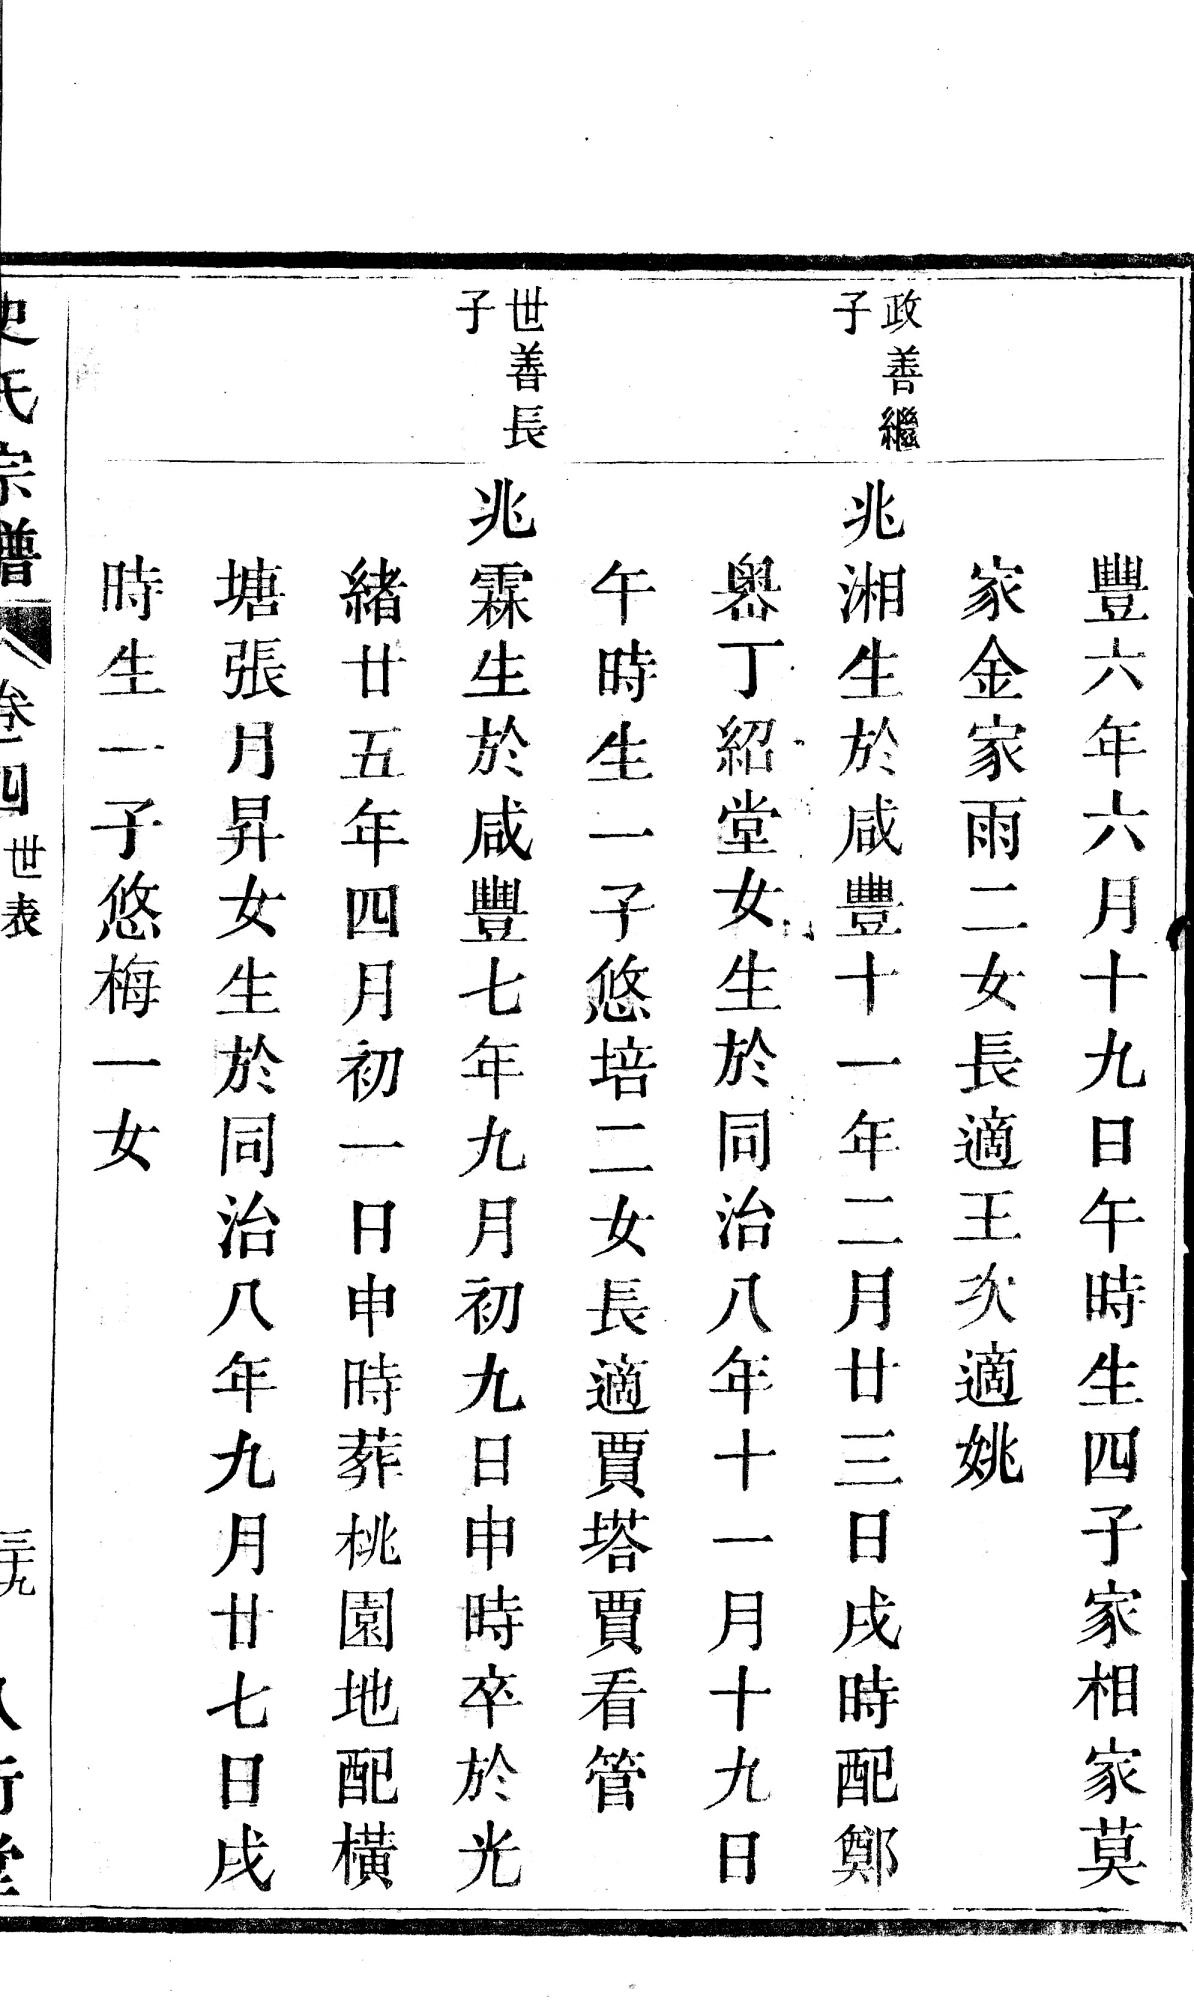 豐六年六月十九日午時生四子家相家莫
家金家雨二女長適王次適姚
政善繼
子
兆湘生於咸豐十一年二月廿三日戌時配鄭
嶴丁紹堂女生於同治八年十一月十九日
午時生一子悠培二女長適賈塔賈看管
世善長
子
兆霖生於咸豐七年九月初九日申時卒於光
緒廿五年四月初一日申時葬桃園地配橫
塘張月昇女生於同治八年九月廿七日戌
時生一子悠梅一女
史氏宗譜
卷四
世表
三十九
八行堂